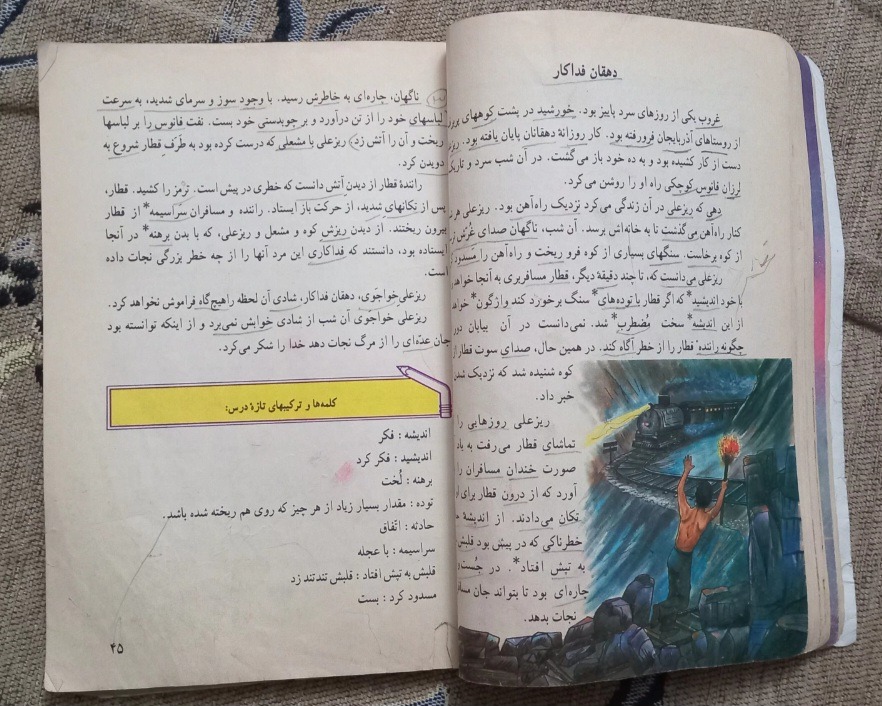 دهقان فداکار
غروب یکی از روزهای سرد پاییز بود. خورشید در پشت کوههای
از روستاهای آذربایجان فرورفته بود. کار روزانهٔ دهقانان پایان یافته بود.
دست از کار کشیده بود و به ده خود باز می‌گشت. در آن شب سرد و
لرزان فانوس کوچکی راه او را روشن می‌کرد.
دهی که ریزعلی در آن زندگی می‌کرد نزدیک راه‌آهن بود. ریزعلی
کنار راه‌آهن می‌گذشت تا به خانه‌اش برسد. آن شب، ناگهان صدای غرش
از کوه برخاست. سنگهای بسیاری از کوه فرو ریخت و راه‌آهن را مسدود
ریزعلی می‌دانست که، تا چند دقیقهٔ دیگر، قطار مسافربری به آنجا
با خود اندیشید* که اگر قطار با توده‌های* سنگ برخورد کند واژگون*
از این اندیشه* سخت مُضطرب* شد. نمی‌دانست در آن بیابان
چگونه راننده قطار را از خطر آگاه کند. در همین حال، صدای سوت قطار از
کوه شنیده شد که نزدیک
خبر داد.
ریزعلی روزهایی را
تماشای قطار می‌رفت به
صورت خندان مسافران را
آورد که از درون قطار برای
تکان می‌دادند. از اندیشهٔ
خطرناکی که در پیش بود قلبش
به تپش افتاد*. در
چاره‌ای بود تا بتواند جان
نجات بدهد.
ناگهان، چاره‌ای به خاطرش رسید. با وجود سوز و سرمای شدید، به سرعت
لباسهای خود را از تن درآورد و بر چوبدستی خود بست. نفت فانوس را بر لباسها
ریخت و آن را آتش زد. ریزعلی با مشعلی که درست کرده بود به طرفِ قطار شروع به
دویدن کرد.
رانندهٔ قطار از دیدنِ آتش دانست که خطری در پیش است. ترمز را کشید. قطار،
پس از تکانهای شدید، از حرکت باز ایستاد. راننده و مسافران سراسیمه* از قطار
بیرون ریختند. از دیدن ریزش کوه و مشعل و ریزعلی، که با بدن برهنه* در آنجا
ایستاده بود، دانستند که فداکاری این مرد آنها را از چه خطر بزرگی نجات داده
است.
ریزعلی خواجَوی، دهقان فداکار، شادی آن لحظه را هیچ‌گاه فراموش نخواهد کرد.
ریزعلی خواجَوی آن شب از شادی خوابش نمی‌برد و از اینکه توانسته بود
جان عدّه‌ای را از مرگ نجات دهد خدا را شکر می‌کرد.
کلمه‌ها و ترکیبهای تازهٔ درس:
اندیشه : فکر
اندیشید : فکر کرد
برهنه : لُخت
توده : مقدار بسیار زیاد از هر چیز که روی هم ریخته شده باشد.
حادثه : اتّفاق
سراسیمه : با عجله
قلبش به تپش افتاد : قلبش تندتند زد
مسدود کرد : بست
۴۵